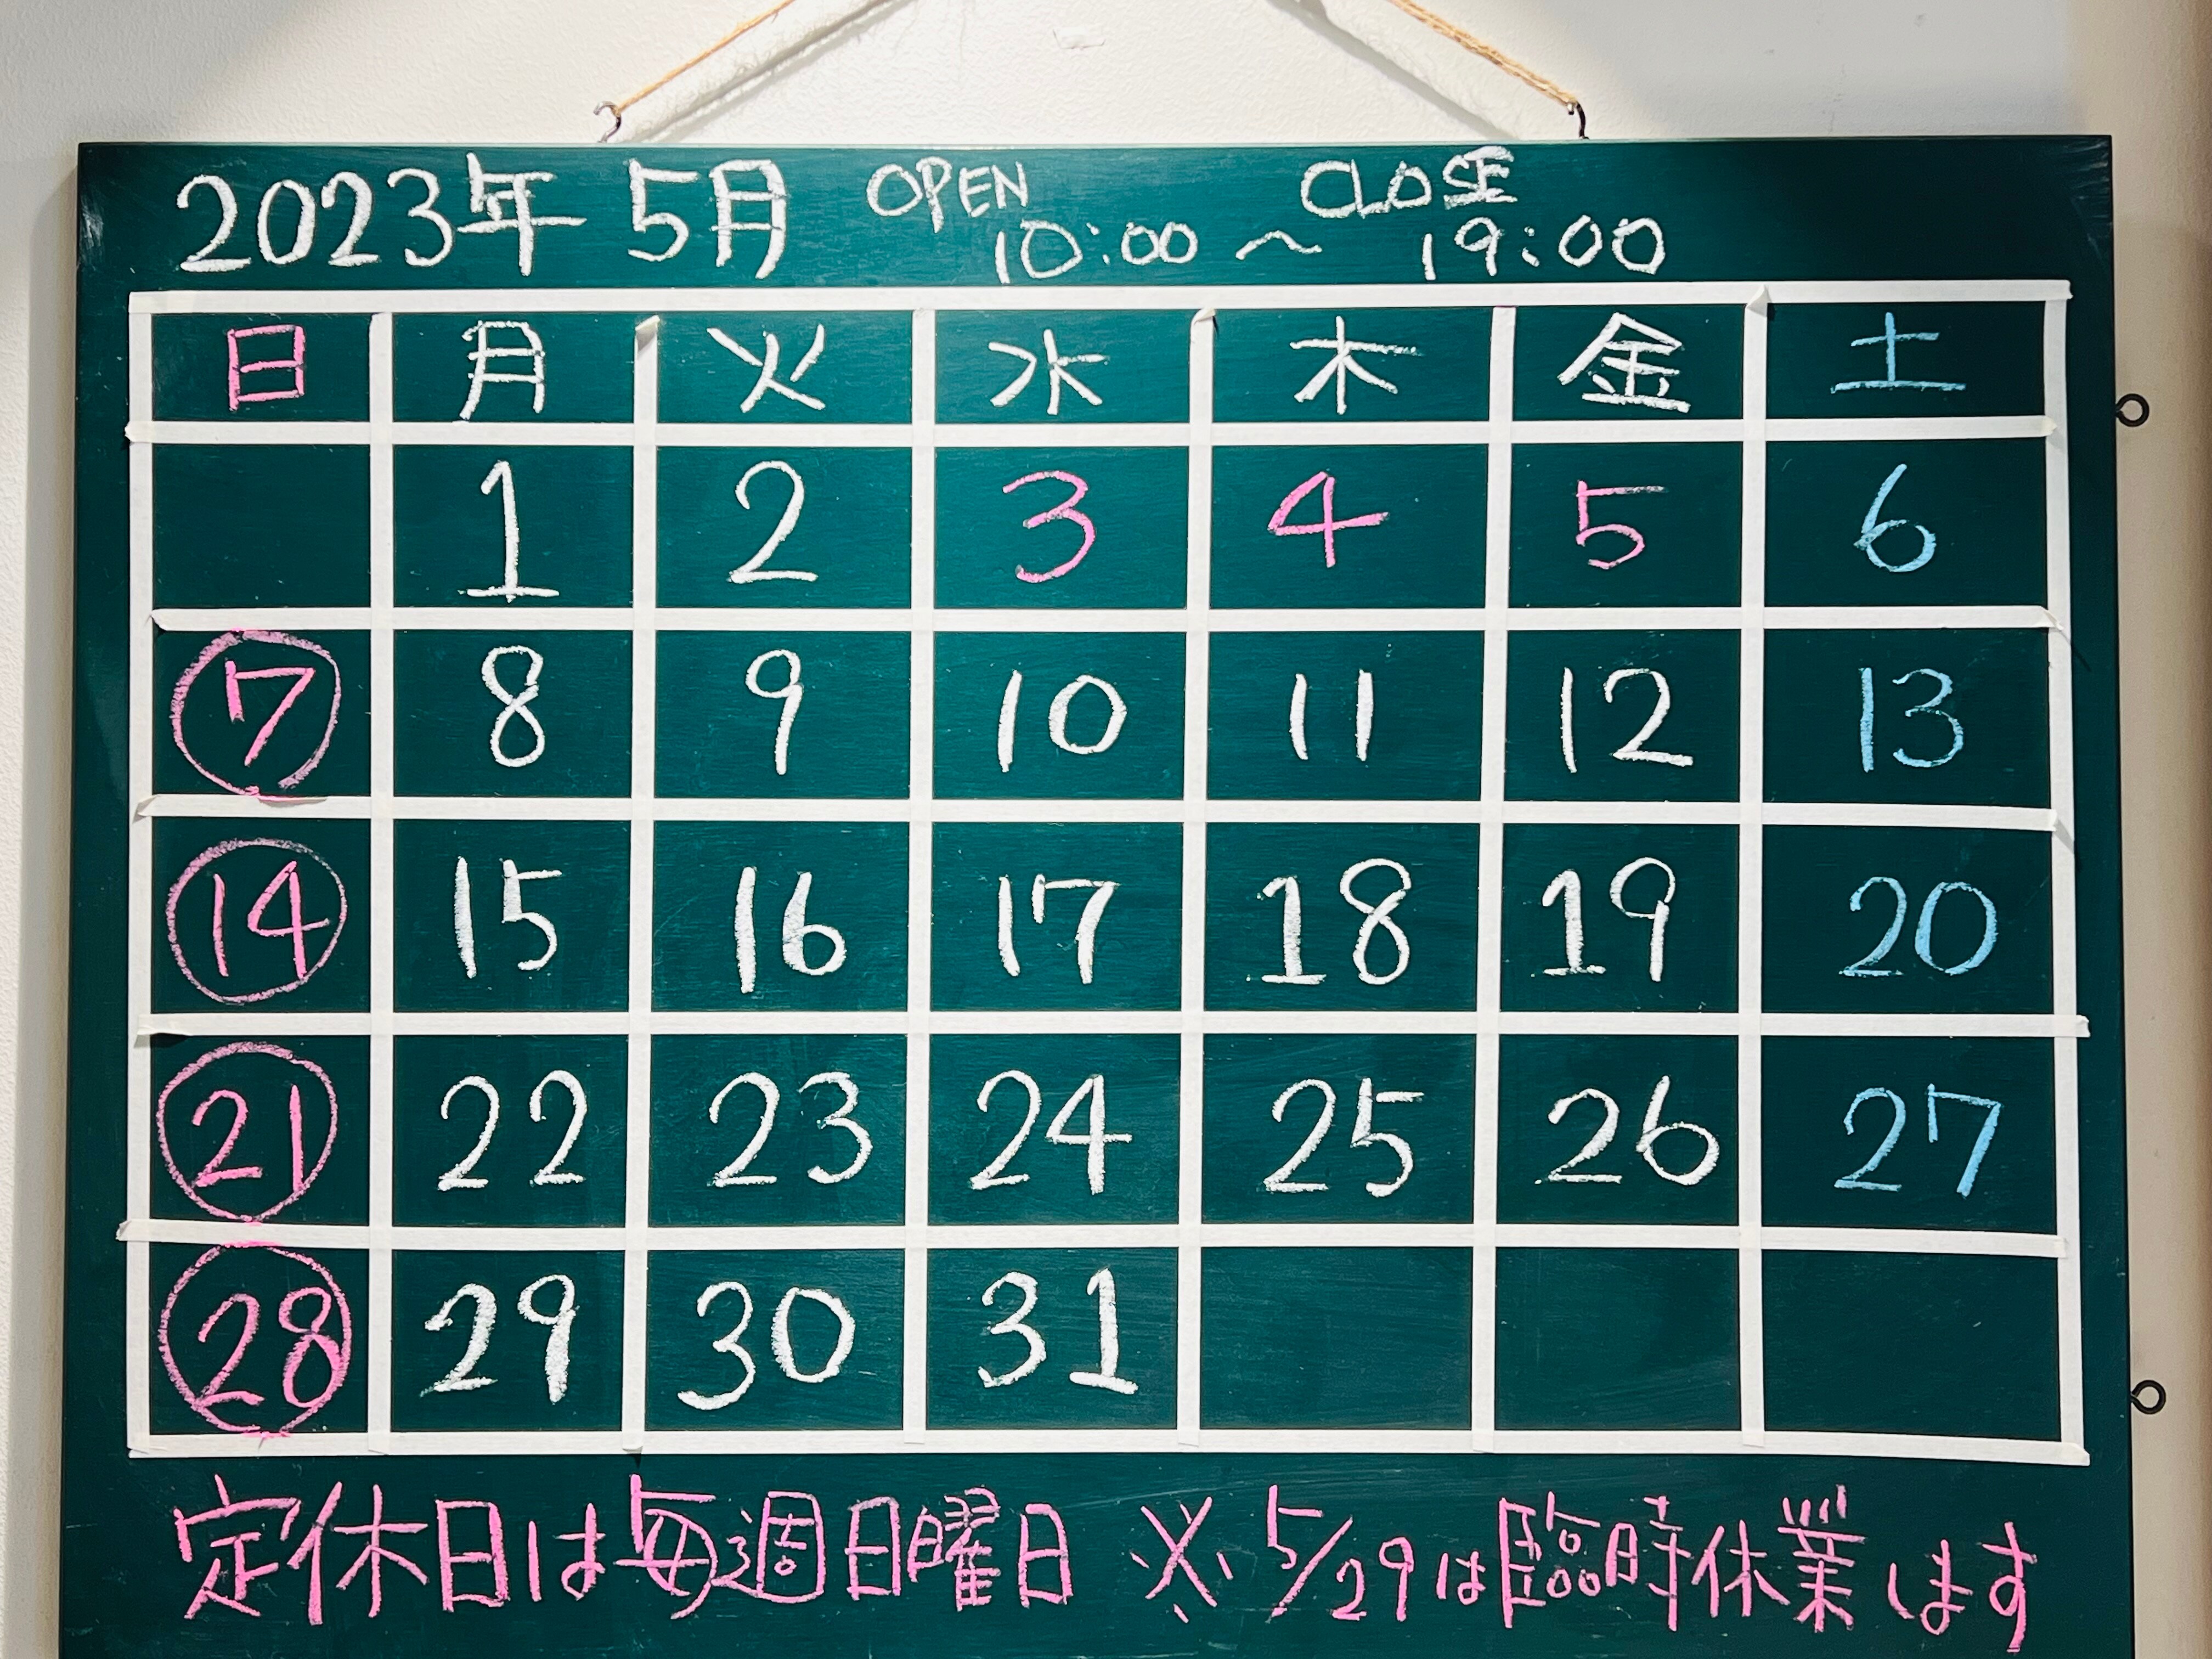 2023年 5月 OPEN 10:00 〜 CLOSE 19:00
日 月 火 水 木 金 土
1 2 3 4 5 6
7 8 9 10 11 12 13
14 15 16 17 18 19 20
21 22 23 24 25 26 27
28 29 30 31
定休日は毎週日曜日 ※5/29は臨時休業します